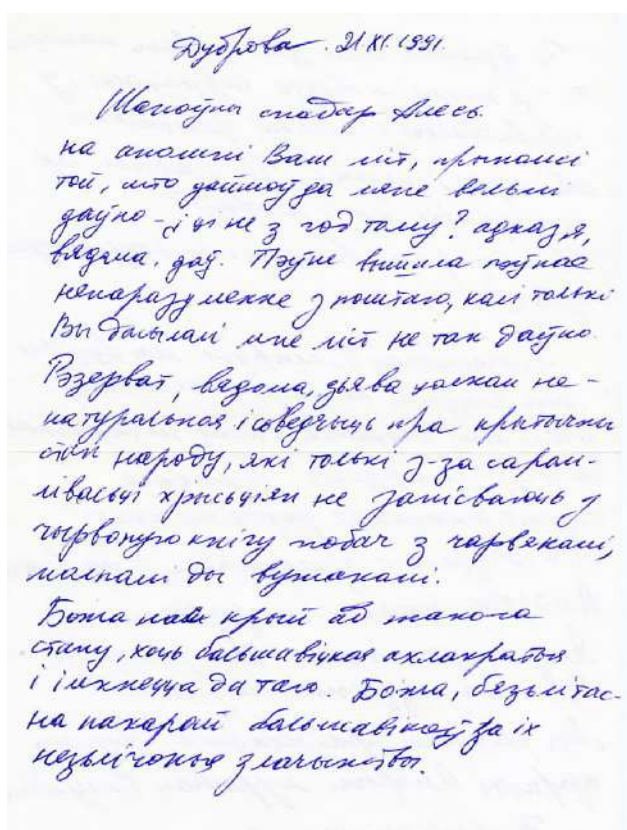 Дуброва. 21.XI.1991.
Шаноўны спадар Алесь.
на апошні Ваш ліст, прынамсі
той, што дайшоў да мяне вельмі
даўно – ці не з год таму? адказ я,
вядома, даў. Пэўне выйшла пэўнае
непаразуменне з поштаю, калі толькі
Вы дасылалі мне ліст не так даўно.
Рэзерват, вядома, зьява цалкам не-
натуральная і сведчыць пра крытычны
стан народу, які толькі з-за сарам-
лівасьці хрысьціян не запісваюць у
чырвоную кнігу побач з чарвякамі,
малпамі ды вужакамі.
Божа крый ад такога
стану, хоць бальшавіцкая ахлакратыя
і імкнецца да таго. Божа, бязьлітас-
на пакарай бальшавікоў за іх
незьлічоныя злачынствы.